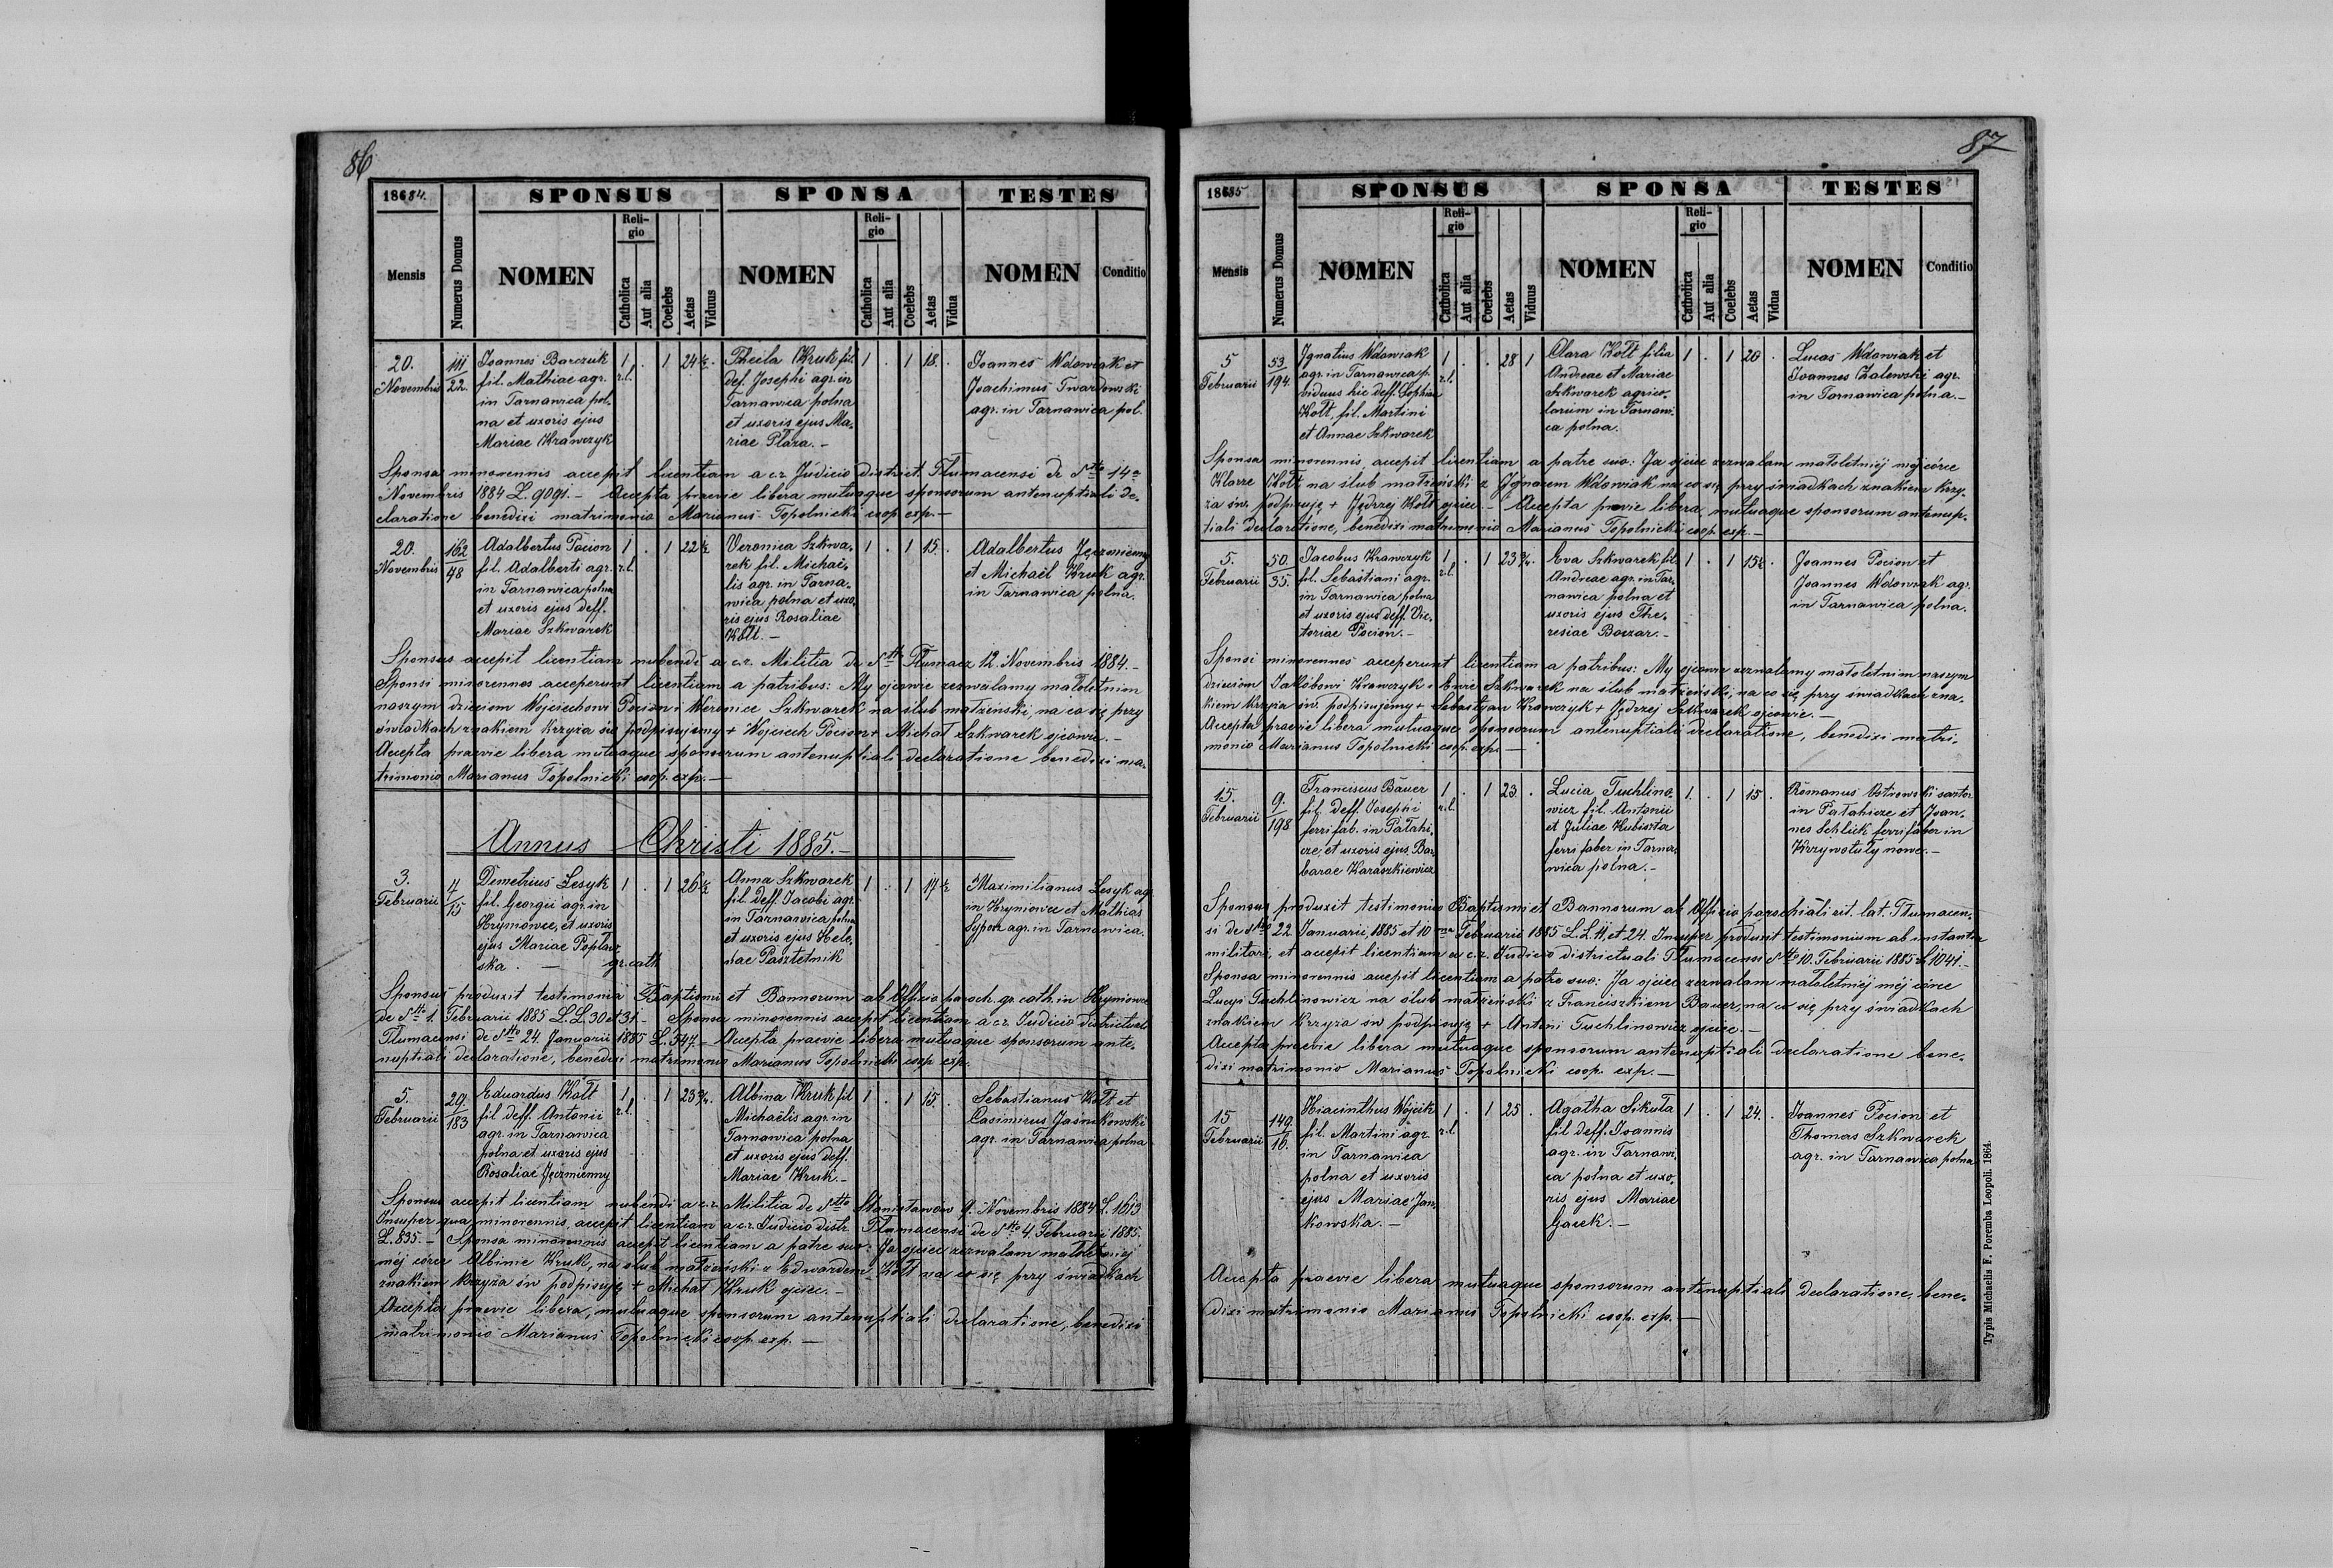 86
1884.
SPONSUS
SPONSA
TESTES
Mensis
Numerus Domus
NOMEN
Religio
Catholica
Aut alia
Coelebs
Aetas
Viduus
NOMEN
Religio
Catholica
Aut alia
Coelebs
Aetas
Vidua
NOMEN
Conditio
20.
Novembris
111
22
Joannes Barczuk
fil. Mathiae agr.
in Tarnawica pol-
na et uxoris ejus
Mariae Krawczyk
1 . 1 24½ .
r.l.
Thecla Kruk fil.
def. Josephi agr. in
Tarnawica polna
et uxoris ejus Ma-
riae Płaza. –
1 . 1 18. .
Joannes Wdowiak et
Joachimus Twardowski
agr. in Tarnawica pol.
Sponsa minorennis accepit licentiam a c.r. Judicio district. Tłumacensi de dtto 14a
Novembris 1884 L. 9091. – Accepta praevie libera mutuaque sponsorum antenuptiali de-
claratione benedixi matrimonio Marianus Topolnicki coop. exp. –
20.
Novembris
162
48
Adalbertus Pocion
fil. Adalberti agr.
in Tarnawica polna
et uxoris ejus deff.
Mariae Szkwarek
1 . 1 22½
r.l.
Veronica Szkwa-
rek fil. Michaë-
lis agr. in Tarna-
wica polna et uxo-
ris ejus Rosaliae
Kołt. –
1 . 1 15. .
Adalbertus Jęczmienny
et Michaël Kruk agr.
in Tarnawica polna.
Sponsus accepit licentiam nubendi a c.r. Militia de dtto Tłumacz 12. Novembris 1884. –
Sponsi minorennes acceperunt licentiam a patribus: My ojcowie zezwalamy małoletnim
naszym dzieciom Wojciechowi Pocion i Weronice Szkwarek na ślub małżeński, na co się przy
świadkach znakiem krzyża św. podpisujemy + Wojciech Pocion + Michał Szkwarek ojcowie. –
Accepta praevie libera mutuaque sponsorum antenuptiali declaratione benedixi ma-
trimonio Marianus Topolnicki coop. exp. –
Annus Christi 1885. –
3.
Februarii
4
15
Demetrius Lesyk
fil. Georgii agr. in
Hryniowce, et uxoris
ejus Mariae Popław-
ska. – gr. cath.
1 . 1 26½
Anna Szkwarek
fil. deff. Jacobi agr.
in Tarnawica polna
et uxoris ejus Hele-
nae Pasztetnik
1 . 1 17½
Maximilianus Lesyk agr.
in Hryniowce et Mathias
Sypoń agr. in Tarnawica.
Sponsus produxit testimonia Baptismi et Bannorum ab Officio paroch. gr. cath. in Hryniowce
de dtto 1. Februarii 1885 L.L. 30 et 31 – Sponsa minorennis accepit licentiam a c.r. Judicio districtuali
Tłumacensi de dtto 24. Januarii 1885 L. 547. – Accepta praevie libera mutuaque sponsorum ante-
nuptiali declaratione, benedixi matrimonio Marianus Topolnicki coop. exp.
5.
Februarii
29.
183
Eduardus Kołt
fil deff. Antonii
agr. in Tarnawica
polna et uxoris ejus
Rosaliae Jęczmienny
1 . 1 23¾.
r.l.
Albina Kruk fil
Michaëlis agr. in
Tarnawica polna
et uxoris ejus deff.
Mariae Kruk. –
1 . 1 15. .
Sebastianus Kołt et
Casimirus Jasnikowski
agr. in Tarnawica polna
Sponsus accepit licentiam nubendi a c.r. Militia de dtto Stanisławow 9. Novembris 1884 L. 1613
Insuper qua minorennis, accepit licentiam a c.r. Judicio distr. Tłumacensi de dtto 4. Februarii 1885.
L. 835. – Sponsa minorennis accepit licentiam a patre suo: Ja ojciec zezwalam małoletniej
mej córce Albinie Kruk, na ślub małżeński z Edwardem Kołt na co się przy świadkach
znakiem krzyża św podpisuję + Michał Kruk ojciec. –
Accepta praevie libera, mutuaque sponsorum antenuptiali declaratione, benedixi
matrimonio Marianus Topolnicki coop. exp. –
87
1885
SPONSUS
SPONSA
TESTES
Mensis
Numerus Domus
NOMEN
Religio
Catholica
Aut alia
Coelebs
Aetas
Viduus
NOMEN
Religio
Catholica
Aut alia
Coelebs
Aetas
Vidua
NOMEN
Conditio
5
Februarii
53
194.
Ignatius Wdowiak
agr. in Tarnawica p.
viduus hic deff. Sophiae
Kołt, fil. Martini
et Annae Szkwarek
1 . . 28 1
r.l.
Clara Kołt filia
Andreae et Mariae
Szkwarek agrico-
larum in Tarnawi-
ca polna.
1 . 1 20 .
Lucas Wdowiak et
Joannes Zalewski agr.
in Tarnawica polna. –
Sponsa minorennis, accepit licentiam a patre suo: Ja ojciec zezwalam małoletniéj méj córce
Klarze Kołt na ślub małżeński z Ignacem Wdowiak na co się przy świadkach znakiem krzy-
ża św. podpisuję + Jędrzej Kołt ojciec. – Accepta praevie libera, mutuaque sponsorum antenup-
tiali declaratione, benedixi matrimonio Marianus Topolnicki coop. exp. –
5.
Februarii
50.
35.
Jacobus Krawczyk
fil. Sebastiani agr.
in Tarnawica polna
et uxoris ejus deff. Vic-
toriae Pocion. –
1 . 1 23¾.
r.l.
Eva Szkwarek fil.
Andreae agr. in Tar-
nawica polna et
uxoris ejus The-
resiae Boczar. –
1 . 1 15½ .
Joannes Pocion et
Joannes Wdowiak agr.
in Tarnawica polna.
Sponsi minorennes acceperunt licentiam a patribus: My ojcowie zezwalamy małoletnim naszym
dzieciom Jakóbowi Krawczyk i Ewie Szkwarek na ślub małżeński, na co się przy świadkach zna-
kiem krzyża św. podpisujemy + Sebastyan Krawczyk + Jędrzej Szkwarek ojcowie. –
Accepta praevie libera mutuaque sponsorum antenuptiali declaratione, benedixi matri-
monio Marianus Topolnicki coop. exp. –
15.
Februarii
9.
198
Franciscus Bauer
fil. deff. Josephi
ferri fab. in Pałahi-
cze, et uxoris ejus Bar-
barae Karaszkiewicz
1 . 1 23. .
r.l.
Lucia Tuchlino-
wicz fil. Antonii
et Juliae Kubisita
ferri faber in Tarna-
wica polna. –
1. . 1 15 .
Romanus Ostrowski sartor
in Pałahicze et Joan-
nes Schlick ferri faber in
Krzywotuły nowe. –
Sponsus produxit testimonia Baptismi et Bannorum ab Officio parochiali rit. lat. Tłumacen-
si de dtto 22. Januarii, 1885 et 10ma Februarii 1885 L.L. 11, et 24. Insuper produxit testimonium ab instantia
militari, et accepit licentiam a c.r. Judicio districtuali Tłumacensi dtto 10. Februarii 1885 L 1041. –
Sponsa minorennis accepit licentiam a patre suo: Ja ojciec zezwalam małoletniéj méj córce
Lucyi Tuchlinowicz na ślub małżeński z Franciszkiem Bauer, na co się przy świadkach
znakiem krzyża św podpisuję + Antoni Tuchlinowicz ojciec. –
Accepta praevie libera mutuaque sponsorum antenuptiali declaratione bene-
dixi matrimonio Marianus Topolnicki coop. exp. –
15
Februarii
149.
16.
Hiacinthus Wójcik
fil. Martini agr.
in Tarnawica
polna et uxoris
ejus Mariae Jan-
kowska. –
1 . 1 25. .
r.l
Agatha Sikuła
fil deff. Joannis
agr. in Tarnawi-
ca polna et uxo-
ris ejus Mariae
Gacek. –
1 . 1 24. .
Joannes Pocion et
Thomas Szkwarek
agr. in Tarnawica polna
Accepta praevie libera mutuaque sponsorum antenuptiali declaratione, bene-
dixi matrimonio Marianus Topolnicki coop. exp. –
Typis Michaelis F. Poremba Leopoli. 1864.